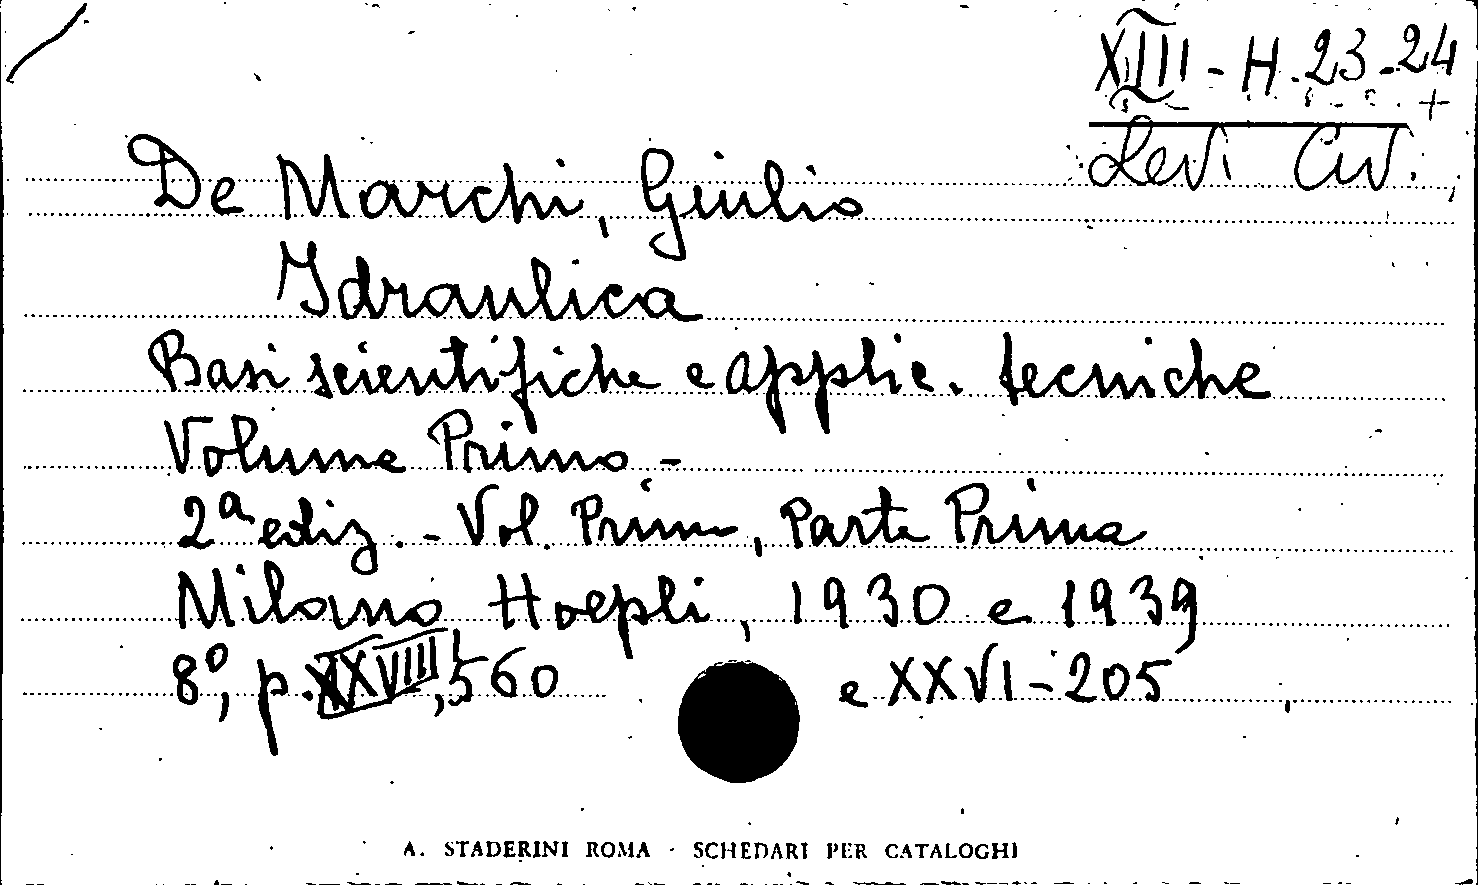 XIII - H. 23-24
+
Levi Civ.
De Marchi, Giulio
Idraulica
Basi scientifiche e applic. tecniche
Volume Primo -
2ª ediz. - Vol. Primo, Parte Prima
Milano Hoepli, 1930 e 1939
8º, p. XXVIII, 560 e XXVI - 205
A. STADERINI ROMA - SCHEDARI PER CATALOGHI